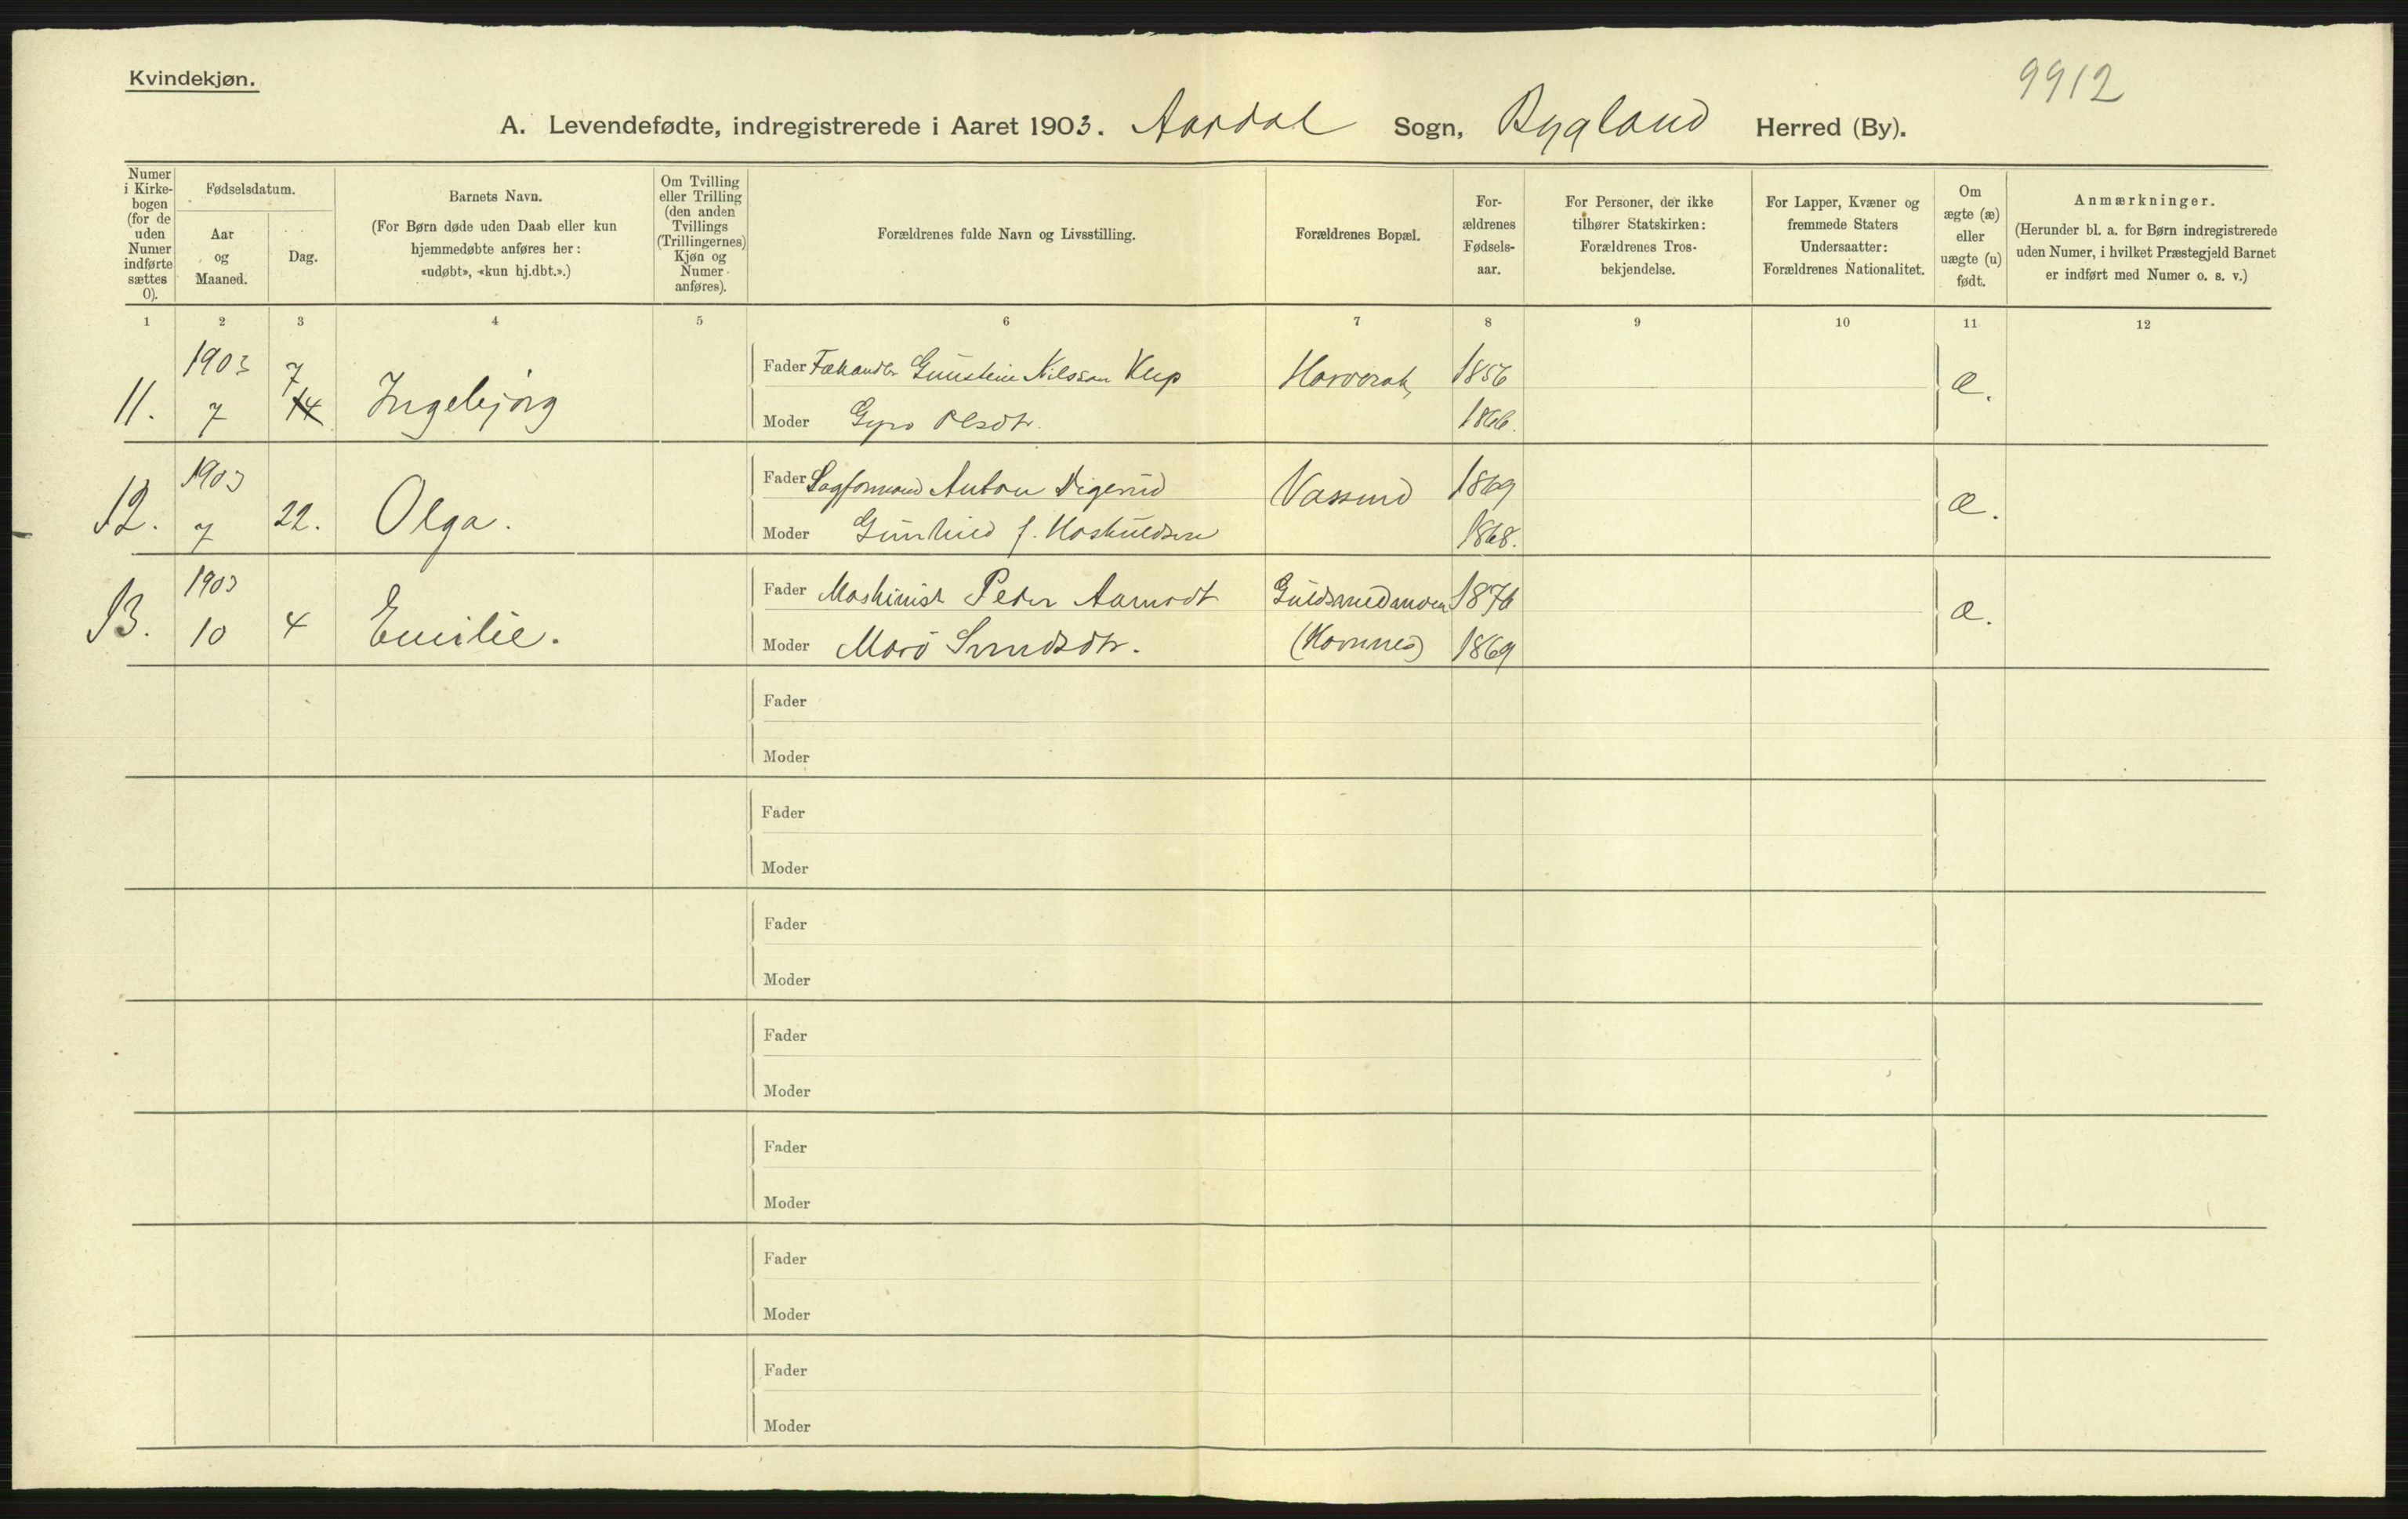 Kvindekjøn.
9912
A. Levendefødte, indregistrerede i Aaret 1903. Aardal Sogn, Bygland Herred (By).
Numer i Kirkebogen (for de uden Numer indførte sættes 0).
Fødselsdatum.
Aar og Maaned.
Dag.
Barnets Navn.
(For Børn døde uden Daab eller kun hjemmedøbte anføres her: «udøbt», «kun hj.dbt.».)
Om Tvilling eller Trilling (den anden Tvillings (Trillingernes) Kjøn og Numer anføres).
Forældrenes fulde Navn og Livsstilling.
Forældrenes Bopæl.
Forældrenes Fødselsaar.
For Personer, der ikke tilhører Statskirken: Forældrenes Trosbekjendelse.
For Lapper, Kvæner og fremmede Staters Undersaatter: Forældrenes Nationalitet.
Om ægte (æ) eller uægte (u) født.
Anmærkninger.
(Herunder bl. a. for Børn indregistrerede uden Numer, i hvilket Præstegjeld Barnet er indført med Numer o. s. v.)
1 2 3 4 5 6 7 8 9 10 11 12
11. 1903 7 7 14 Ingebjørg
Fader Fæhandler Gunstein Nilsson Kup Horverak 1856 æ.
Moder Gyro Olsdtr. 1866.
12. 1903 7 22. Olga.
Fader Sagformand Anton Digerud Vassend 1869 æ.
Moder Gunhild f. Hoskuldsen 1868.
13. 1903 10 4 Emilie.
Fader Maskinist Peder Aamodt Guldsmedmoen 1876 æ.
Moder Mari Svendsdtr. (Hornnes) 1869
Fader
Moder
Fader
Moder
Fader
Moder
Fader
Moder
Fader
Moder
Fader
Moder
Fader
Moder